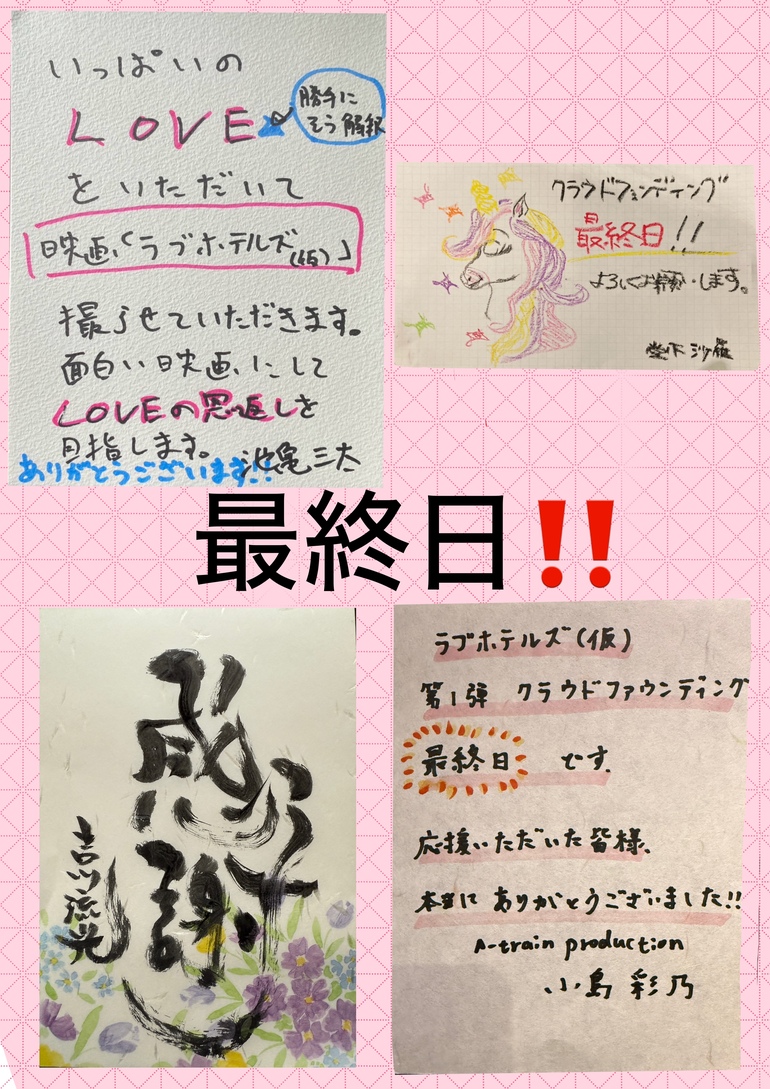 いっぱいの
LOVE
勝手に
そう解釈
をいただいて
映画「ラブホテルズ(仮)」
撮らせていただきます。
面白い映画にして
LOVEの恩返しを
目指します。
ありがとうございます!!
池亀三太
クラウドファンディング
最終日!!
よろしくお願いします。
堂下沙羅
最終日‼️
感謝
吉川流光
ラブホテルズ(仮)
第1弾 クラウドファウンディング
最終日 です。
応援いただいた皆様、
本当に ありがとうございました!!
A-train production
小島彩乃